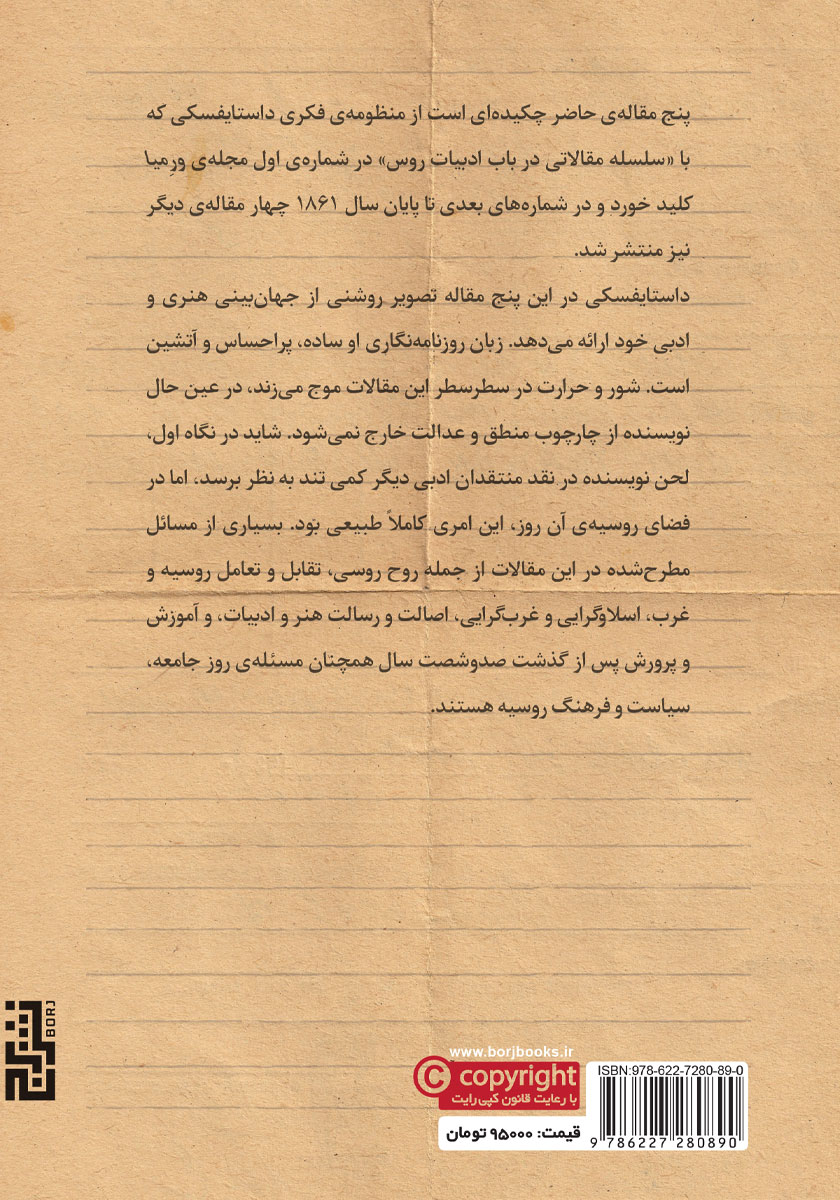 پنج مقاله‌ی حاضر چکیده‌ای است از منظومه‌ی فکری داستایفسکی که
با «سلسله مقالاتی در باب ادبیات روس» در شماره‌ی اول مجله‌ی ورِمیا
کلید خورد و در شماره‌های بعدی تا پایان سال ۱۸۶۱ چهار مقاله‌ی دیگر
نیز منتشر شد.
داستایفسکی در این پنج مقاله تصویر روشنی از جهان‌بینی هنری و
ادبی خود ارائه می‌دهد. زبان روزنامه‌نگاری او ساده، پراحساس و آتشین
است. شور و حرارت در سطرسطر این مقالات موج می‌زند، در عین حال
نویسنده از چارچوب منطق و عدالت خارج نمی‌شود. شاید در نگاه اول،
لحن نویسنده در نقد منتقدان ادبی دیگر کمی تند به نظر برسد، اما در
فضای روسیه‌ی آن روز، این امری کاملاً طبیعی بود. بسیاری از مسائل
مطرح‌شده در این مقالات از جمله روح روسی، تقابل و تعامل روسیه و
غرب، اسلاوگرایی و غرب‌گرایی، اصالت و رسالت هنر و ادبیات، و آموزش
و پرورش پس از گذشت صدوشصت سال همچنان مسئله‌ی روز جامعه،
سیاست و فرهنگ روسیه هستند.
برج
BORJ
www.borjbooks.ir
© copyright
با رعایت قانون کپی‌رایت
قیمت: ۹۵۰۰۰ تومان
ISBN:978-622-7280-89-0
9 786227 280890